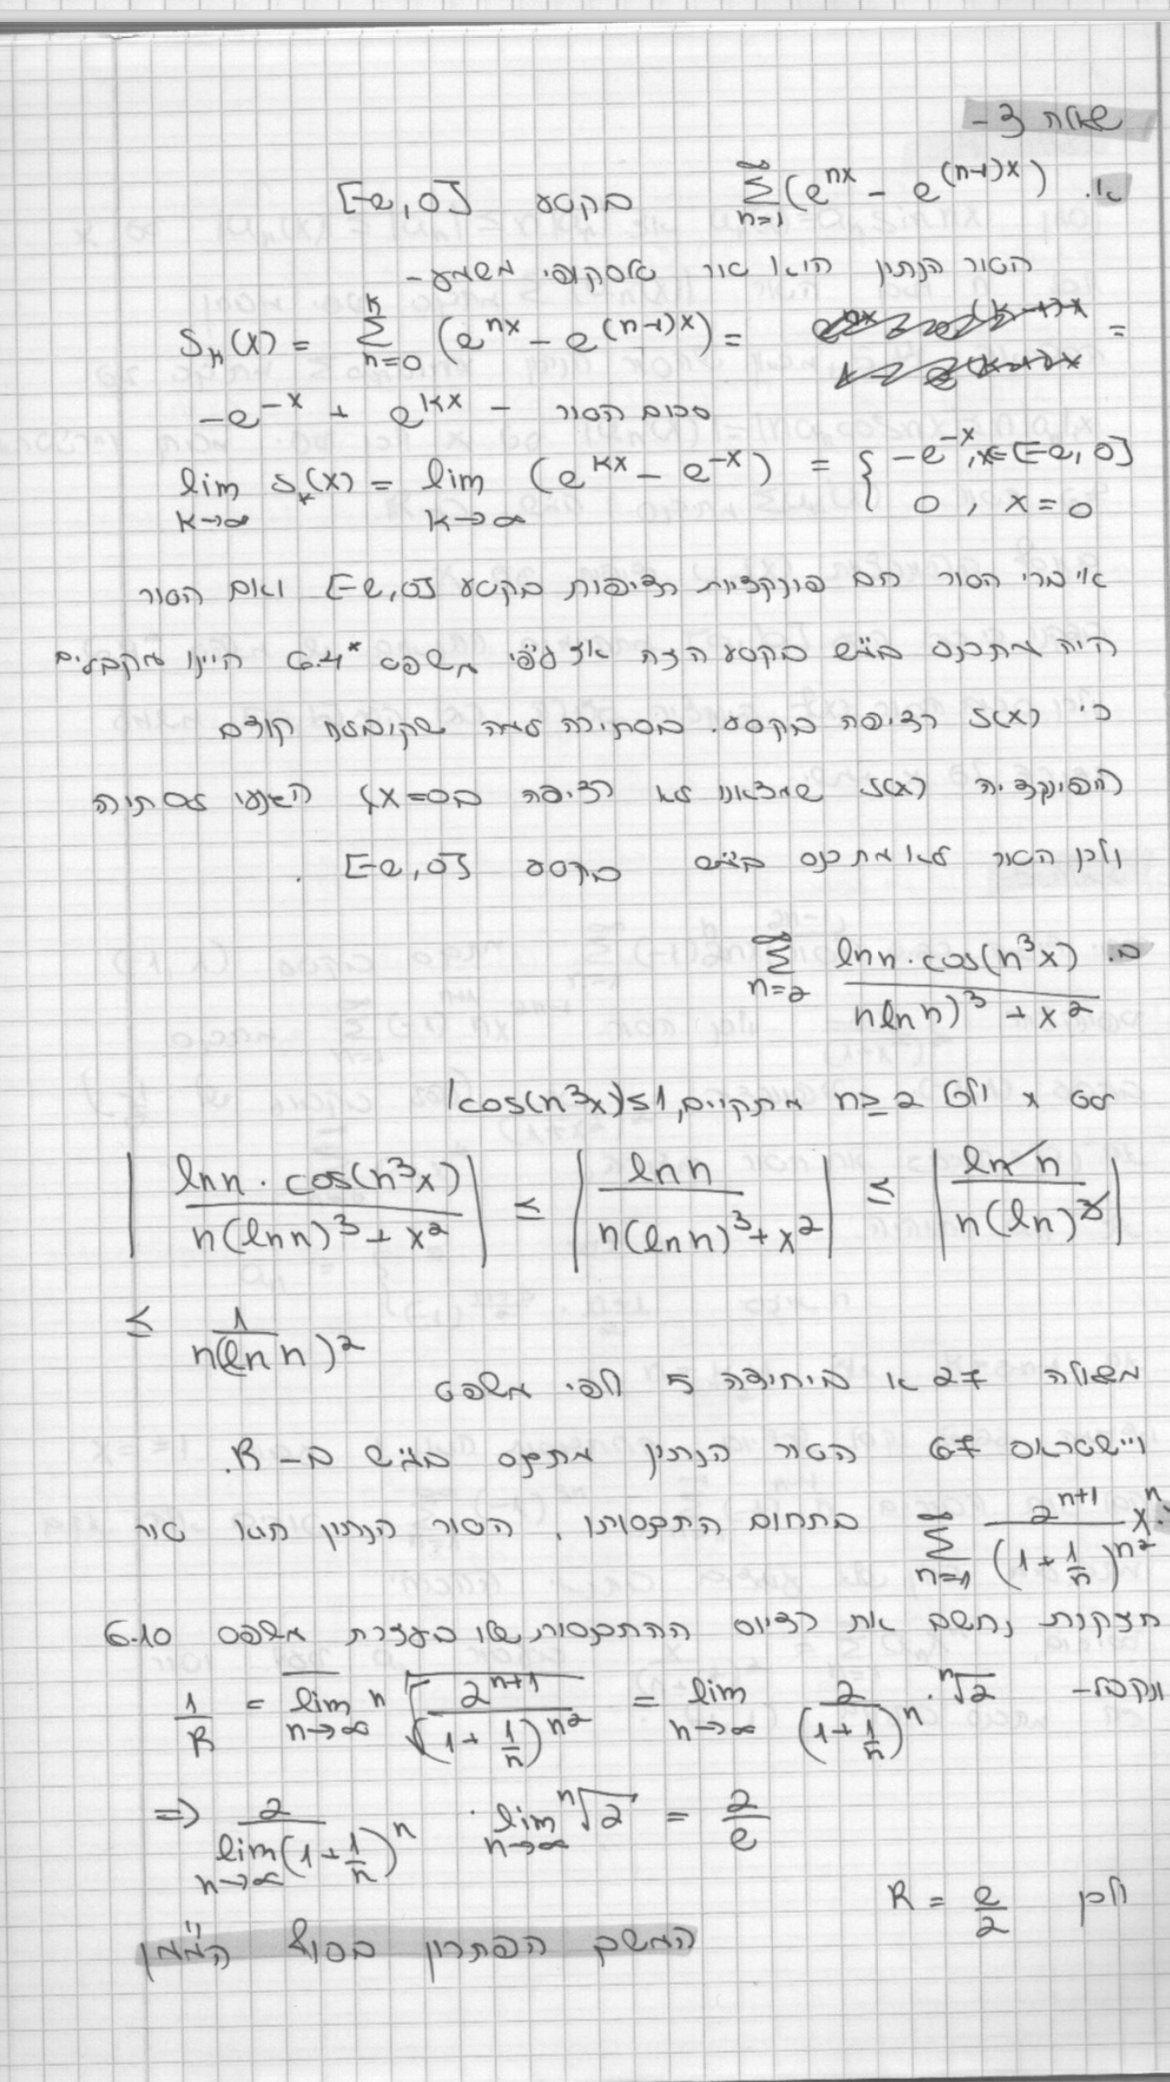 שאלה 3 -
א. $\sum_{n=1}^{\infty} (e^{nx} - e^{(n-1)x})$ בקטע [-e,0]
הטור הנתון הוא טור טלסקופי משמע -
$S_k(x) = \sum_{n=0}^{k} (e^{nx} - e^{(n-1)x}) =$ =
$-e^{-x} + e^{kx}$ - סכום הטור
$\lim_{k \to \infty} S_k(x) = \lim_{k \to \infty} (e^{kx} - e^{-x}) = \begin{cases} -e^{-x}, x = [-e,0] \\ 0, x=0 \end{cases}$
איברי הטור הם פונקציות רציפות בקטע [-e,0] ואם הטור
היה מתכנס במ"ש בקטע הזה אז עפ"י משפט 6.4* היינו מקבלים
כי S(x) רציפה בקטע. בסתירה למה שקיבלנו קודם
(הפונקציה S(x) שמצאנו לא רציפה ב x=0) הגענו לסתירה
ולכן הטור לא מתכנס במ"ש בקטע [-e,0] .
ב. $\sum_{n=2}^{\infty} \frac{\ln n \cdot \cos(n^3x)}{n \ln n)^3 + x^2}$
לכל x ולכל n≥2 מתקיים, |cos(n³x)|≤1
$\left| \frac{\ln n \cdot \cos(n^3x)}{n(\ln n)^3 + x^2} \right| \le \left| \frac{\ln n}{n(\ln n)^3 + x^2} \right| \le \left| \frac{\ln n}{n(\ln)^3} \right|$
$\le \frac{1}{n(\ln n)^2}$
משאלה 27 א ביחידה 5 לפי משפט
ויישטראס 6.7 הטור הנתון מתכנס במ"ש ב - R.
$\sum_{n=1}^{\infty} \frac{2^{n+1}}{(1+\frac{1}{n})^{n^2}} x^n$ בתחום התכנסותו, הטור הנתון הוא טור
חזקות נחשב את רדיוס ההתכנסות שלו בעזרת משפט 6.10
ונקבל - $\frac{1}{R} = \overline{\lim_{n \to \infty}} \sqrt[n]{\frac{2^{n+1}}{(1+\frac{1}{n})^{n^2}}} = \lim_{n \to \infty} \frac{2}{(1+\frac{1}{n})^n} \cdot \sqrt[n]{2}$
$\Rightarrow \frac{2}{\lim_{n \to \infty}(1+\frac{1}{n})^n} \cdot \lim_{n \to \infty} \sqrt[n]{2} = \frac{2}{e}$
ולכן $R = \frac{e}{2}$
המשך הפתרון בסוף הממ"ן